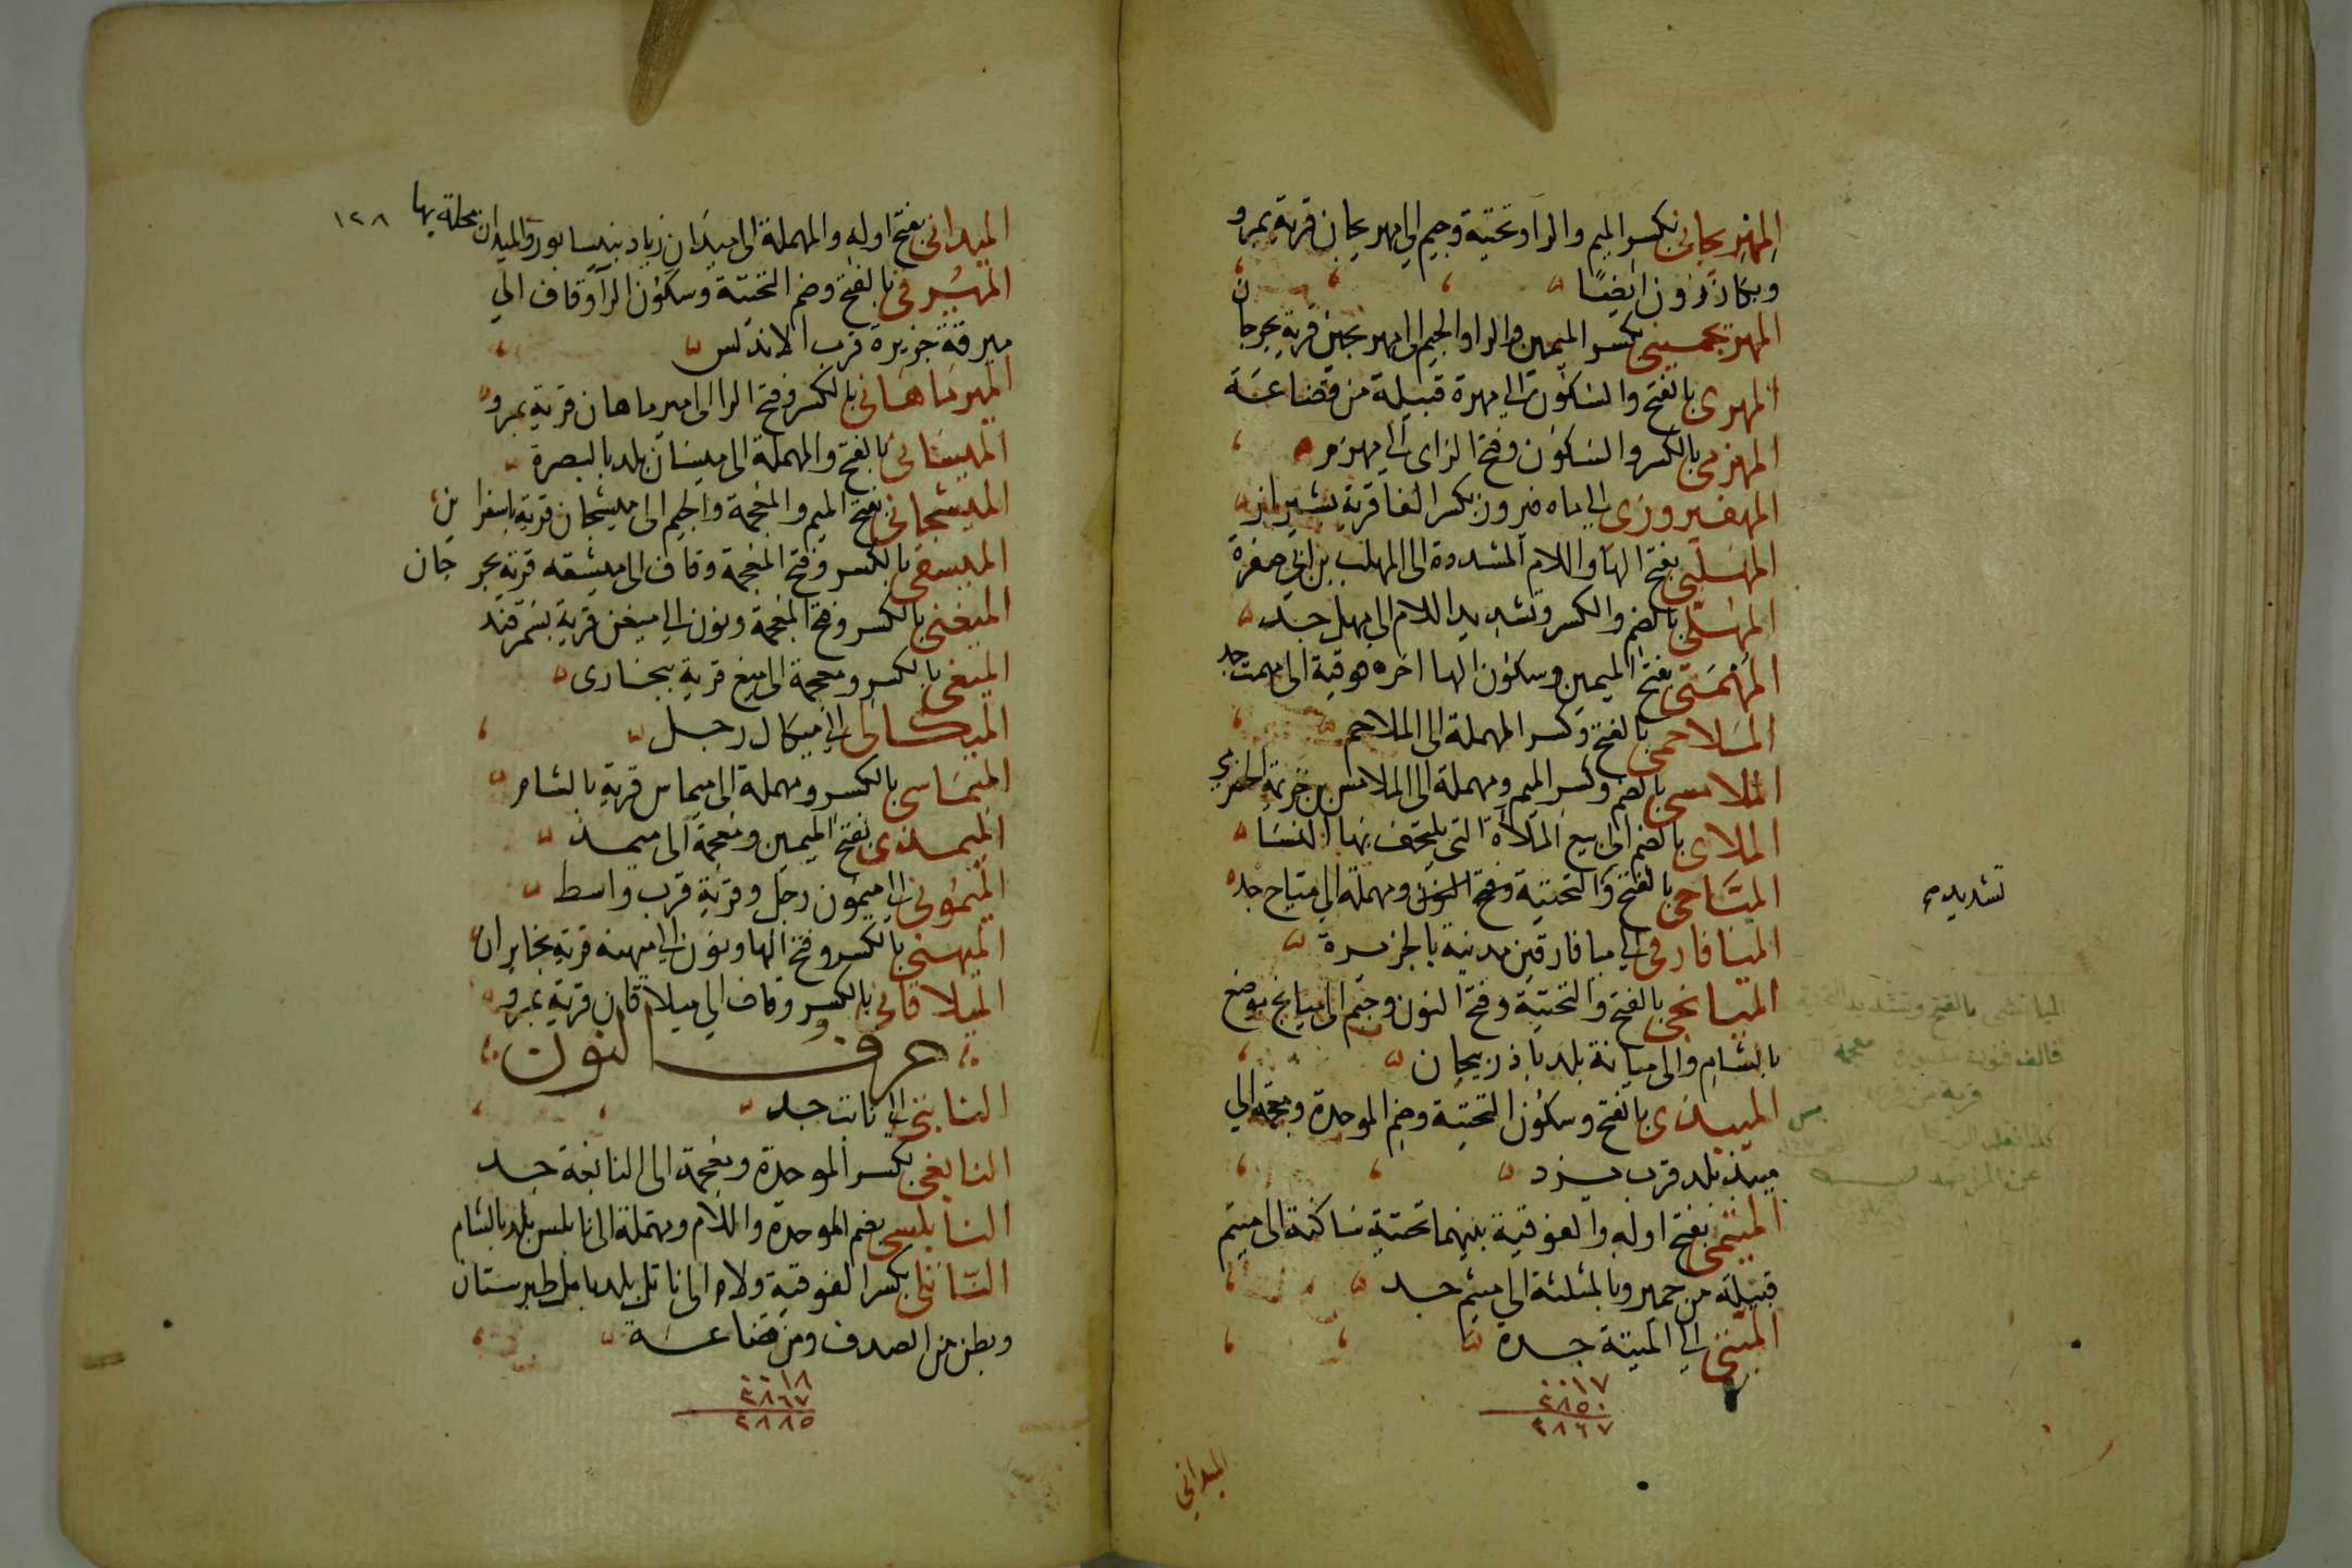 المهريجانى بكسر الميم والرا وتحتية وجيم الى مهريجان قرية بمرو
وبكازرون ايضا
المهرجمينى بكسر الميمين والرا والجيم الى مهرجمين قرية بجرجان
المهرى بالفتح والسكون الى مهرة قبيلة من قضاعة
المهزمى بالكسر والسكون وفتح الزاى الى مهزم
المهفيروزى الى ماه فيروز بكسر الفا قرية بشيراز
المهلبى بفتح الها واللام المشددة الى المهلب بن ابى صفرة
المهلى بالضم والكسر وتشديد اللام الى مهل جد
المهمتى بفتح الميمين وسكون الها اخره فوقية الى مهمت جد
الملاحمى بالفتح وكسر المهملة الى الملاحم
الملامسى بالضم وكسر الميم ومهملة الى الملامس بن خزيمة الحضرمى
الملاى بالضم الى بيع الملاة التى يلتحف بها النسا
المياحى بالفتح والتحتية وفتح النون ومهملة الى مياح جد
تشديد
الميافارقى الى ميافارقين مدينة بالجزيرة
الميانجى بالفتح والتحتية وفتح النون وجيم الى ميانج موضع
بالشام والى ميانة بلد باذربيجان
الميانشى بالفتح وتشديد التحتية
فالف فنون معجمة
الميبذى بالفتح وسكون التحتية وضم الموحدة ومعجمة الى
ميبذ بلد قرب يزد
الميتمى بفتح اوله والفوقية بينهما تحتية ساكنة الى ميتم
قبيلة من حمير وبالمثلثة الى ميثم جد
الميتى الى الميتة جدة
٠٠١٧
٢٨٥٠
٢٨٦٧
الميدانى
١٢٨
الميدانى بفتح اوله والمهملة الى ميدان زياد بنيسابور والميدان محلة بها
الميرقى بالفتح وضم التحتية وسكون الرا وقاف الى
ميرقة جزيرة قرب الاندلس
الميرماهانى بالكسر وفتح الرا الى ميرماهان قرية بمرو
الميسانى بالفتح والمهملة الى ميسان بلد بالبصرة
الميشجانى بفتح الميم والمعجمة والجيم الى ميشجان قرية باسفراين
الميشقى بالكسر وفتح المعجمة وقاف الى ميشقه قرية بجرجان
الميغنى بالكسر وفتح المعجمة ونون الى ميغن قرية بسمرقند
الميغى بالكسر ومعجمة الى ميغ قرية ببخارى
الميكالى الى ميكال رجل
الميماسى بالكسر ومهملة الى ميماس قرية بالشام
الميمذى بفتح الميمين ومعجمة الى ميمذ
الميمونى الى ميمون رجل وقرية قرب واسط
الميهنى بالكسر وفتح الها ونون الى ميهنه قرية بخابران
الميلاقانى بالكسر وقاف الى ميلاقان قرية بمرو
حرف النون
النابتى الى نابت جد
النابغى بكسر الموحدة ومعجمة الى النابغة جد
النابلسى بضم الموحدة واللام ومهملة الى نابلس بلد بالشام
الناتلى بكسر الفوقية ولام الى ناتل بلد بامل طبرستان
وبطن من الصدف ومن قضاعة
٠٠١٨
٢٨٦٧
٢٨٨٥